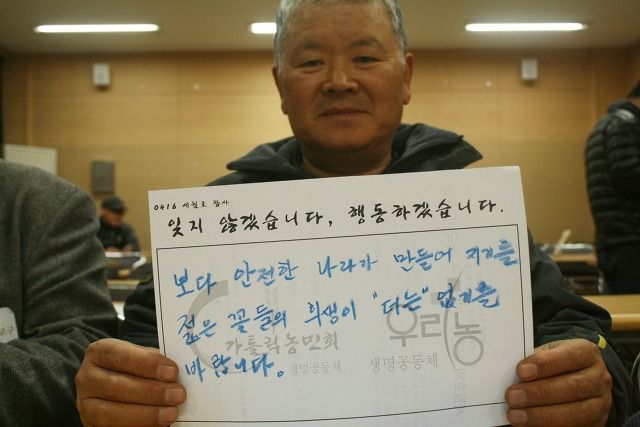 0416 세월호 참사
잊지 않겠습니다, 행동하겠습니다.
보다 안전한 나라가 만들어 지기를
젊은 꽃들의 희생이 "다는" 없기를
바랍니다.
가톨릭농민회
생명공동체
우리농
생명공동체